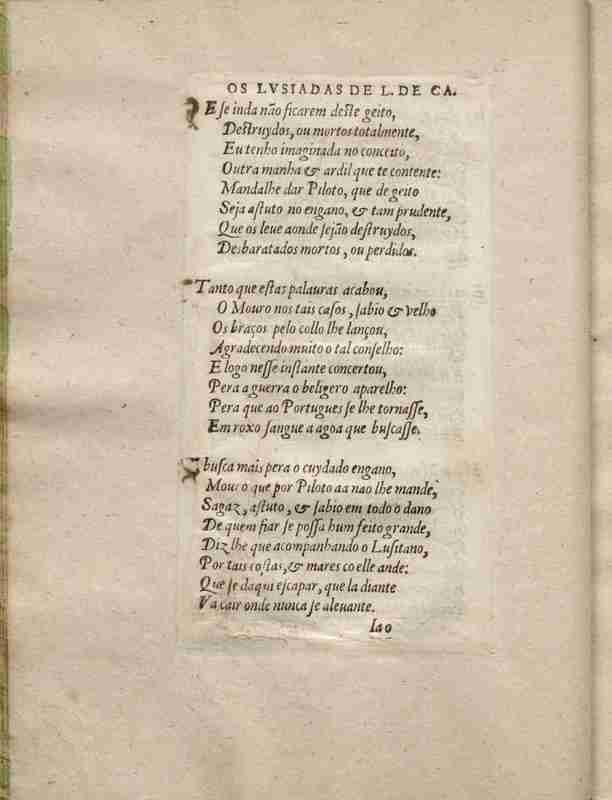 OS LVSIADAS DE L. DE CA.
E se inda não ficarem deste geito,
Destruydos, ou mortos totalmente,
Eu tenho imaginada no conceito,
Outra manha & ardil que te contente:
Mandalhe dar Piloto, que de geito
Seja astuto no engano, & tam prudente,
Que os leue aonde sejão destruydos,
Desbaratados mortos, ou perdidos.
Tanto que estas palauras acabou,
O Mouro nos tais casos, sabio & velho
Os braços pelo collo lhe lançou,
Agradecendo muito o tal conselho:
E logo nesse instante concertou,
Pera a guerra o beligero aparelho:
Pera que ao Portugues se lhe tornasse,
Em roxo sangue a agoa que buscasse.
E busca mais pera o cuydado engano,
Mouro que por Piloto aa nao lhe mande,
Sagaz, astuto, & sabio em todo o dano
De quem fiar se possa hum feito grande,
Diz lhe que acompanhando o Lusitano,
Por tais costas, & mares co elle ande:
Que se daqui escapar, que la diante
Va cair onde nunca se aleuante.
Ia o